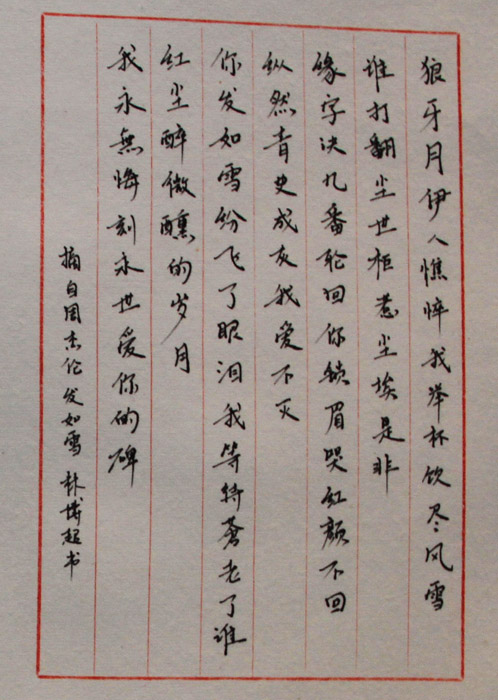 狼牙月伊人憔悴我举杯饮尽风雪
谁打翻尘世柜惹尘埃是非
缘字决几番轮回你锁眉哭红颜不回
纵然青史成灰我爱不灭
你发如雪纷飞了眼泪我等待蒼老了谁
红尘醉微醺的岁月
我永無悔刻永世爱你的碑
摘自周杰伦发如雪 林博超书